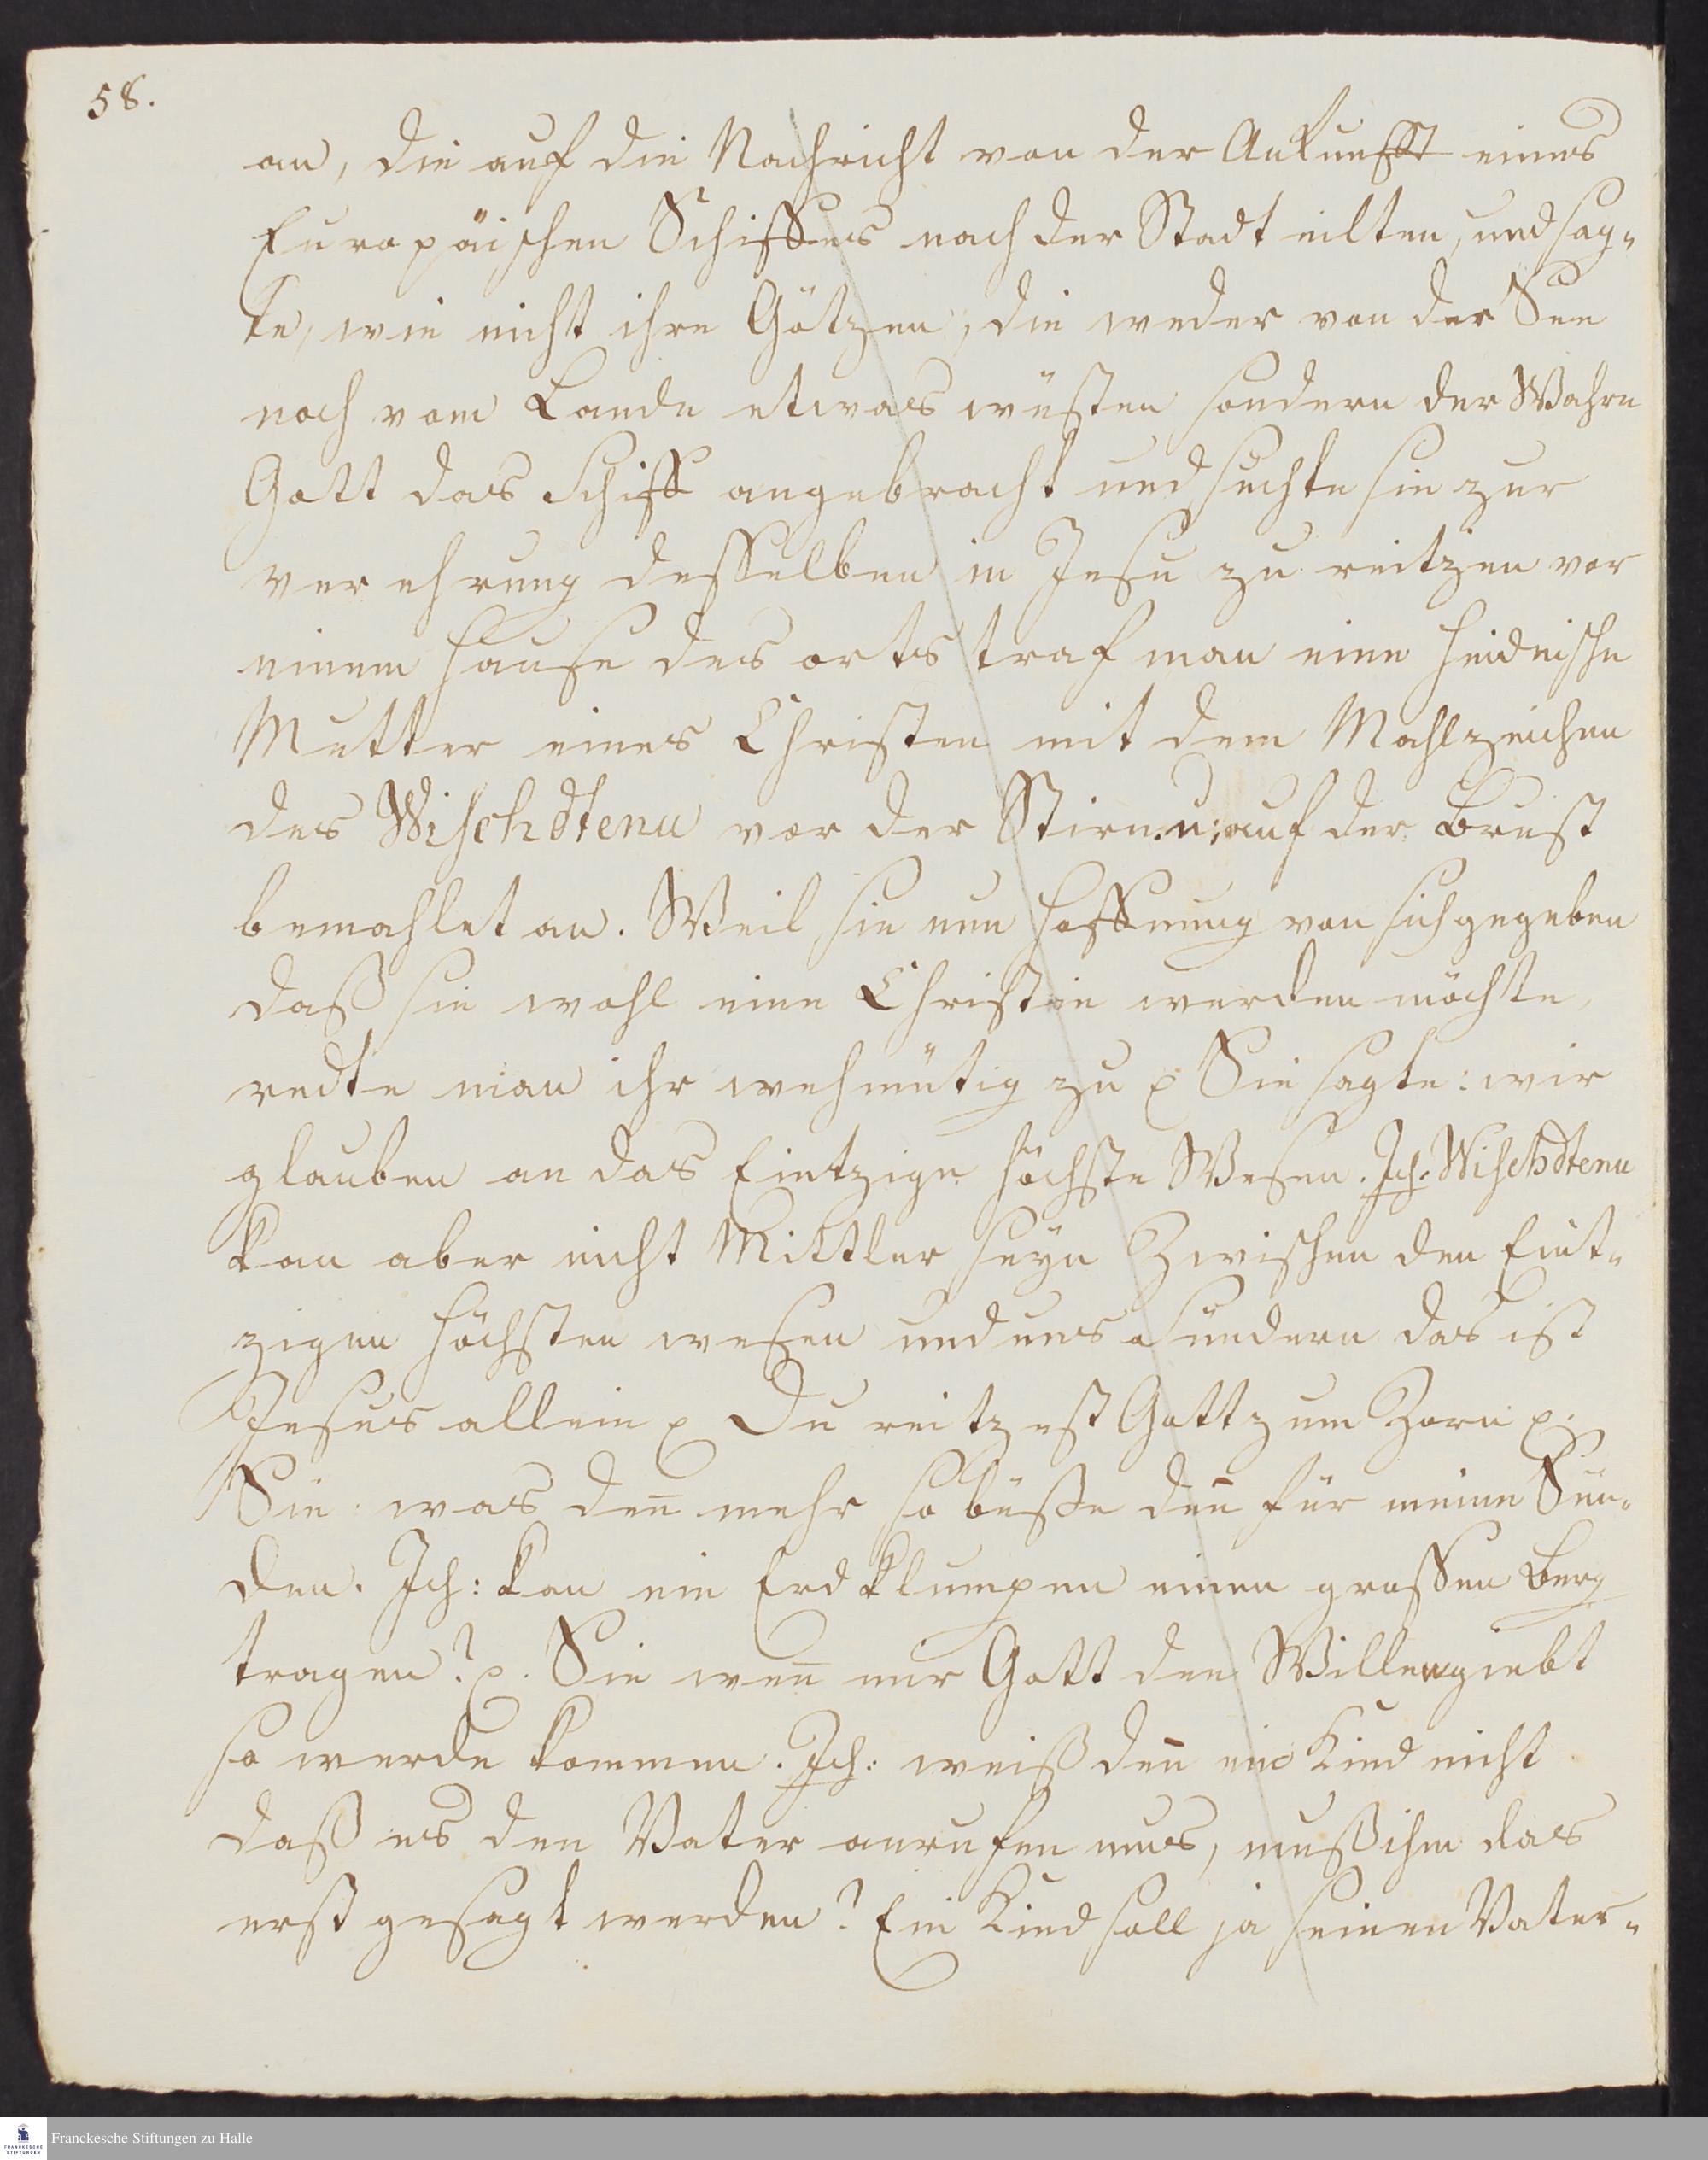 58.
an, die auf die Nachricht von der Ankunfft eines
Europäischen Schiffes nach der Stadt eilten, und sag-
te, wie nicht ihre Götzen, die weder von der See
noch vom Lande etwas wüsten sondern der Wahre
Gott das Schiff angebracht und suchte sie zur
ver ehrung desselben in Jesu zu reitzen vor
einem Hause des orts traf man eine Heidnische
Mutter eines Christen mit dem Mahlzeichen
des Wischdtenu vor der Stirn u: auf der Brust
bemahlet an. Weil sie nun Hoffnung von sich gegeben
daß sie wohl eine Christin werden möchte,
redte man ihr wehmütig zu p Sie sagte: wir
glauben an das Eintzige höchste Wesen. Ich. Wischdtenu
kan aber nicht Mittler seyn Zwischen den Eint-
zigen höchsten wesen und uns Sündern das ist
Jesus allein p Du reitzest Gott zum Zorn p.
Sie: was den̅ mehr so büße den̅ für meine Sün-
den. Ich: kan ein Erdklumpen einen grossen Berg
tragen? p. Sie wen̅ mir Gott den Willen giebt
so werde kommen. Ich: weiß den̅ ein Kind nicht
daß es den Vater anrufen mus, muß ihm das
erst gesagt werden? Ein Kind soll ja seinen Vater-
Franckesche Stiftungen zu Halle